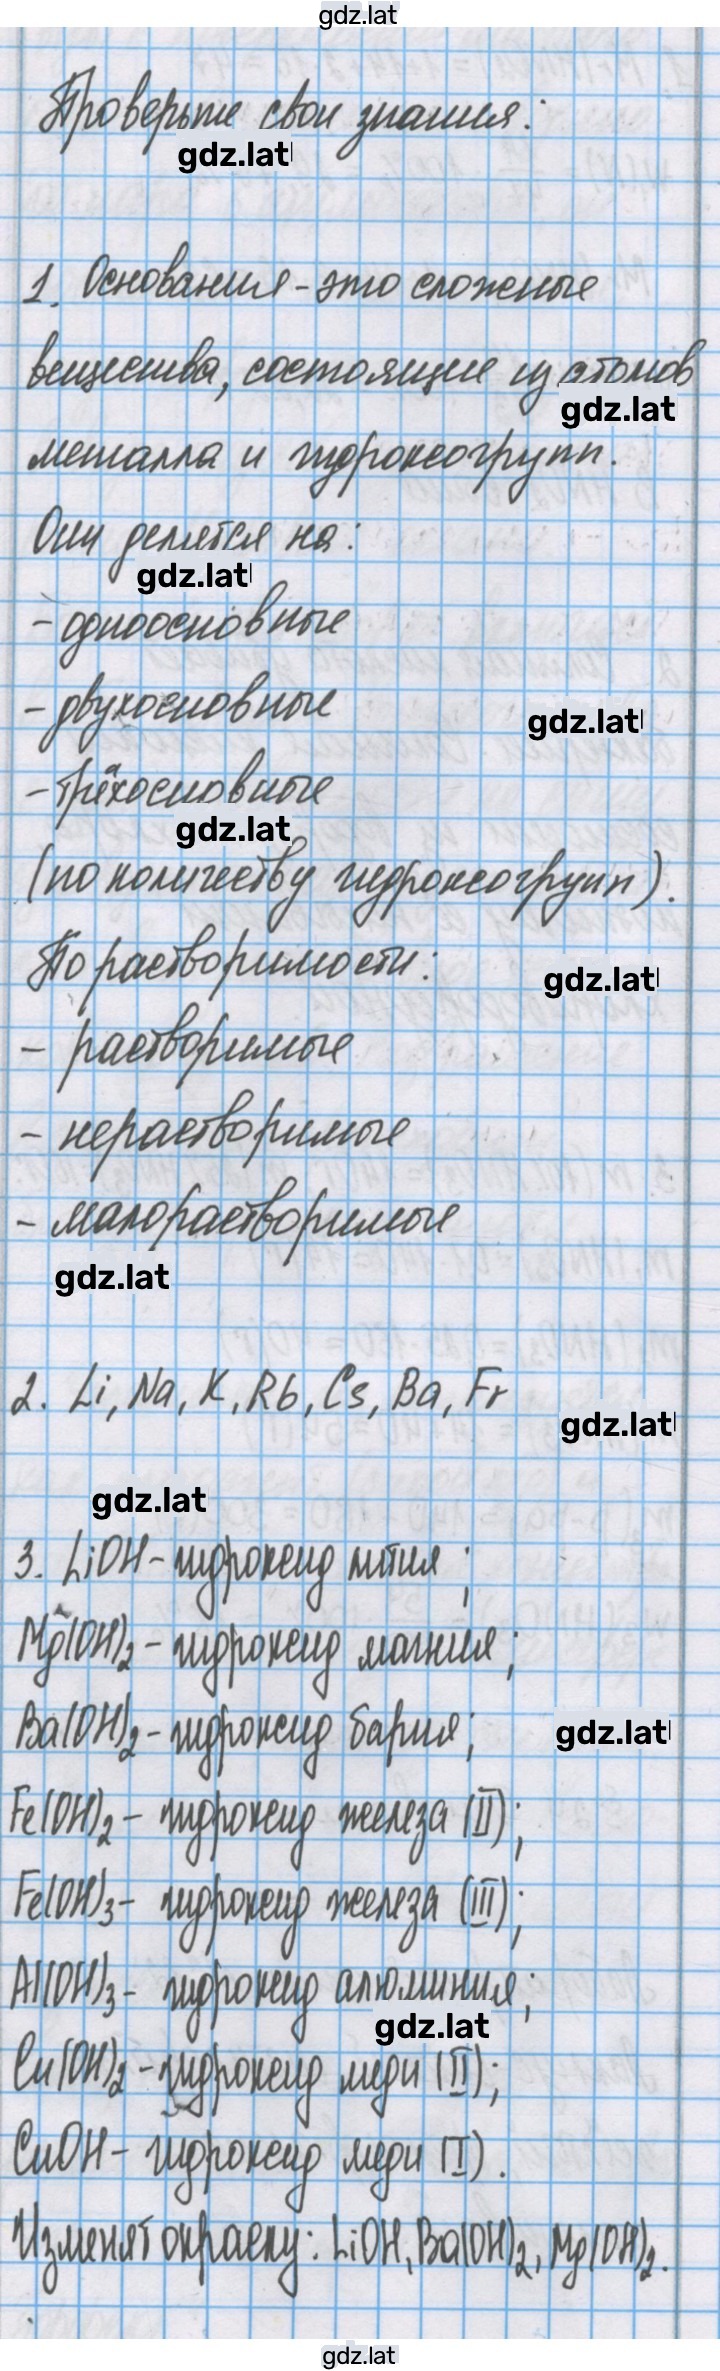 gdz.lat
Проверьте свои знания:
gdz.lat
1. Основания - это сложные
вещества, состоящие из атомов
gdz.lat
металла и гидроксогрупп.
Они делятся на:
gdz.lat
- одноосновные
- двухосновные
gdz.lat
- трёхосновные
gdz.lat
(по количеству гидроксогрупп).
По растворимости:
gdz.lat
- растворимые
- нерастворимые
- малорастворимые
gdz.lat
2. Li, Na, K, Rb, Cs, Ba, Fr
gdz.lat
gdz.lat
3. LiOH - гидроксид лития;
Mg(OH)2 - гидроксид магния;
Ba(OH)2 - гидроксид бария;
gdz.lat
Fe(OH)2 - гидроксид железа (II);
Fe(OH)3 - гидроксид железа (III);
Al(OH)3 - гидроксид алюминия;
gdz.lat
Cu(OH)2 - гидроксид меди (II);
CuOH - гидроксид меди (I).
Изменят окраску: LiOH, Ba(OH)2, Mg(OH)2.
gdz.lat